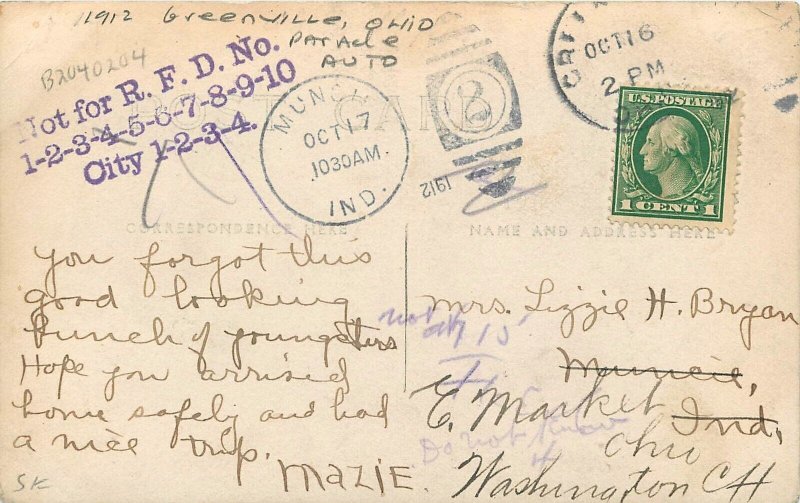 1912 Greenville, OHIO
Parade
AUTO
B2040204
Not for R. F. D. No.
1-2-3-4-5-6-7-8-9-10
City 1-2-3-4.
POST CARD
MUNCIE
OCT 17
1030AM.
IND.
2
1912
OCT 16
2 PM
U.S. POSTAGE
1 CENT 1
CORRESPONDENCE HERE
NAME AND ADDRESS HERE
You forgot this
good looking
bunch of youngsters
Hope you arrived
home safely and had
a nice trip.
Mazie.
SK
Mrs. Lizzie H. Bryan
Muncie,
Ind,
not at 15
Do not Know
4
E. Market
Ohio
Washington CH